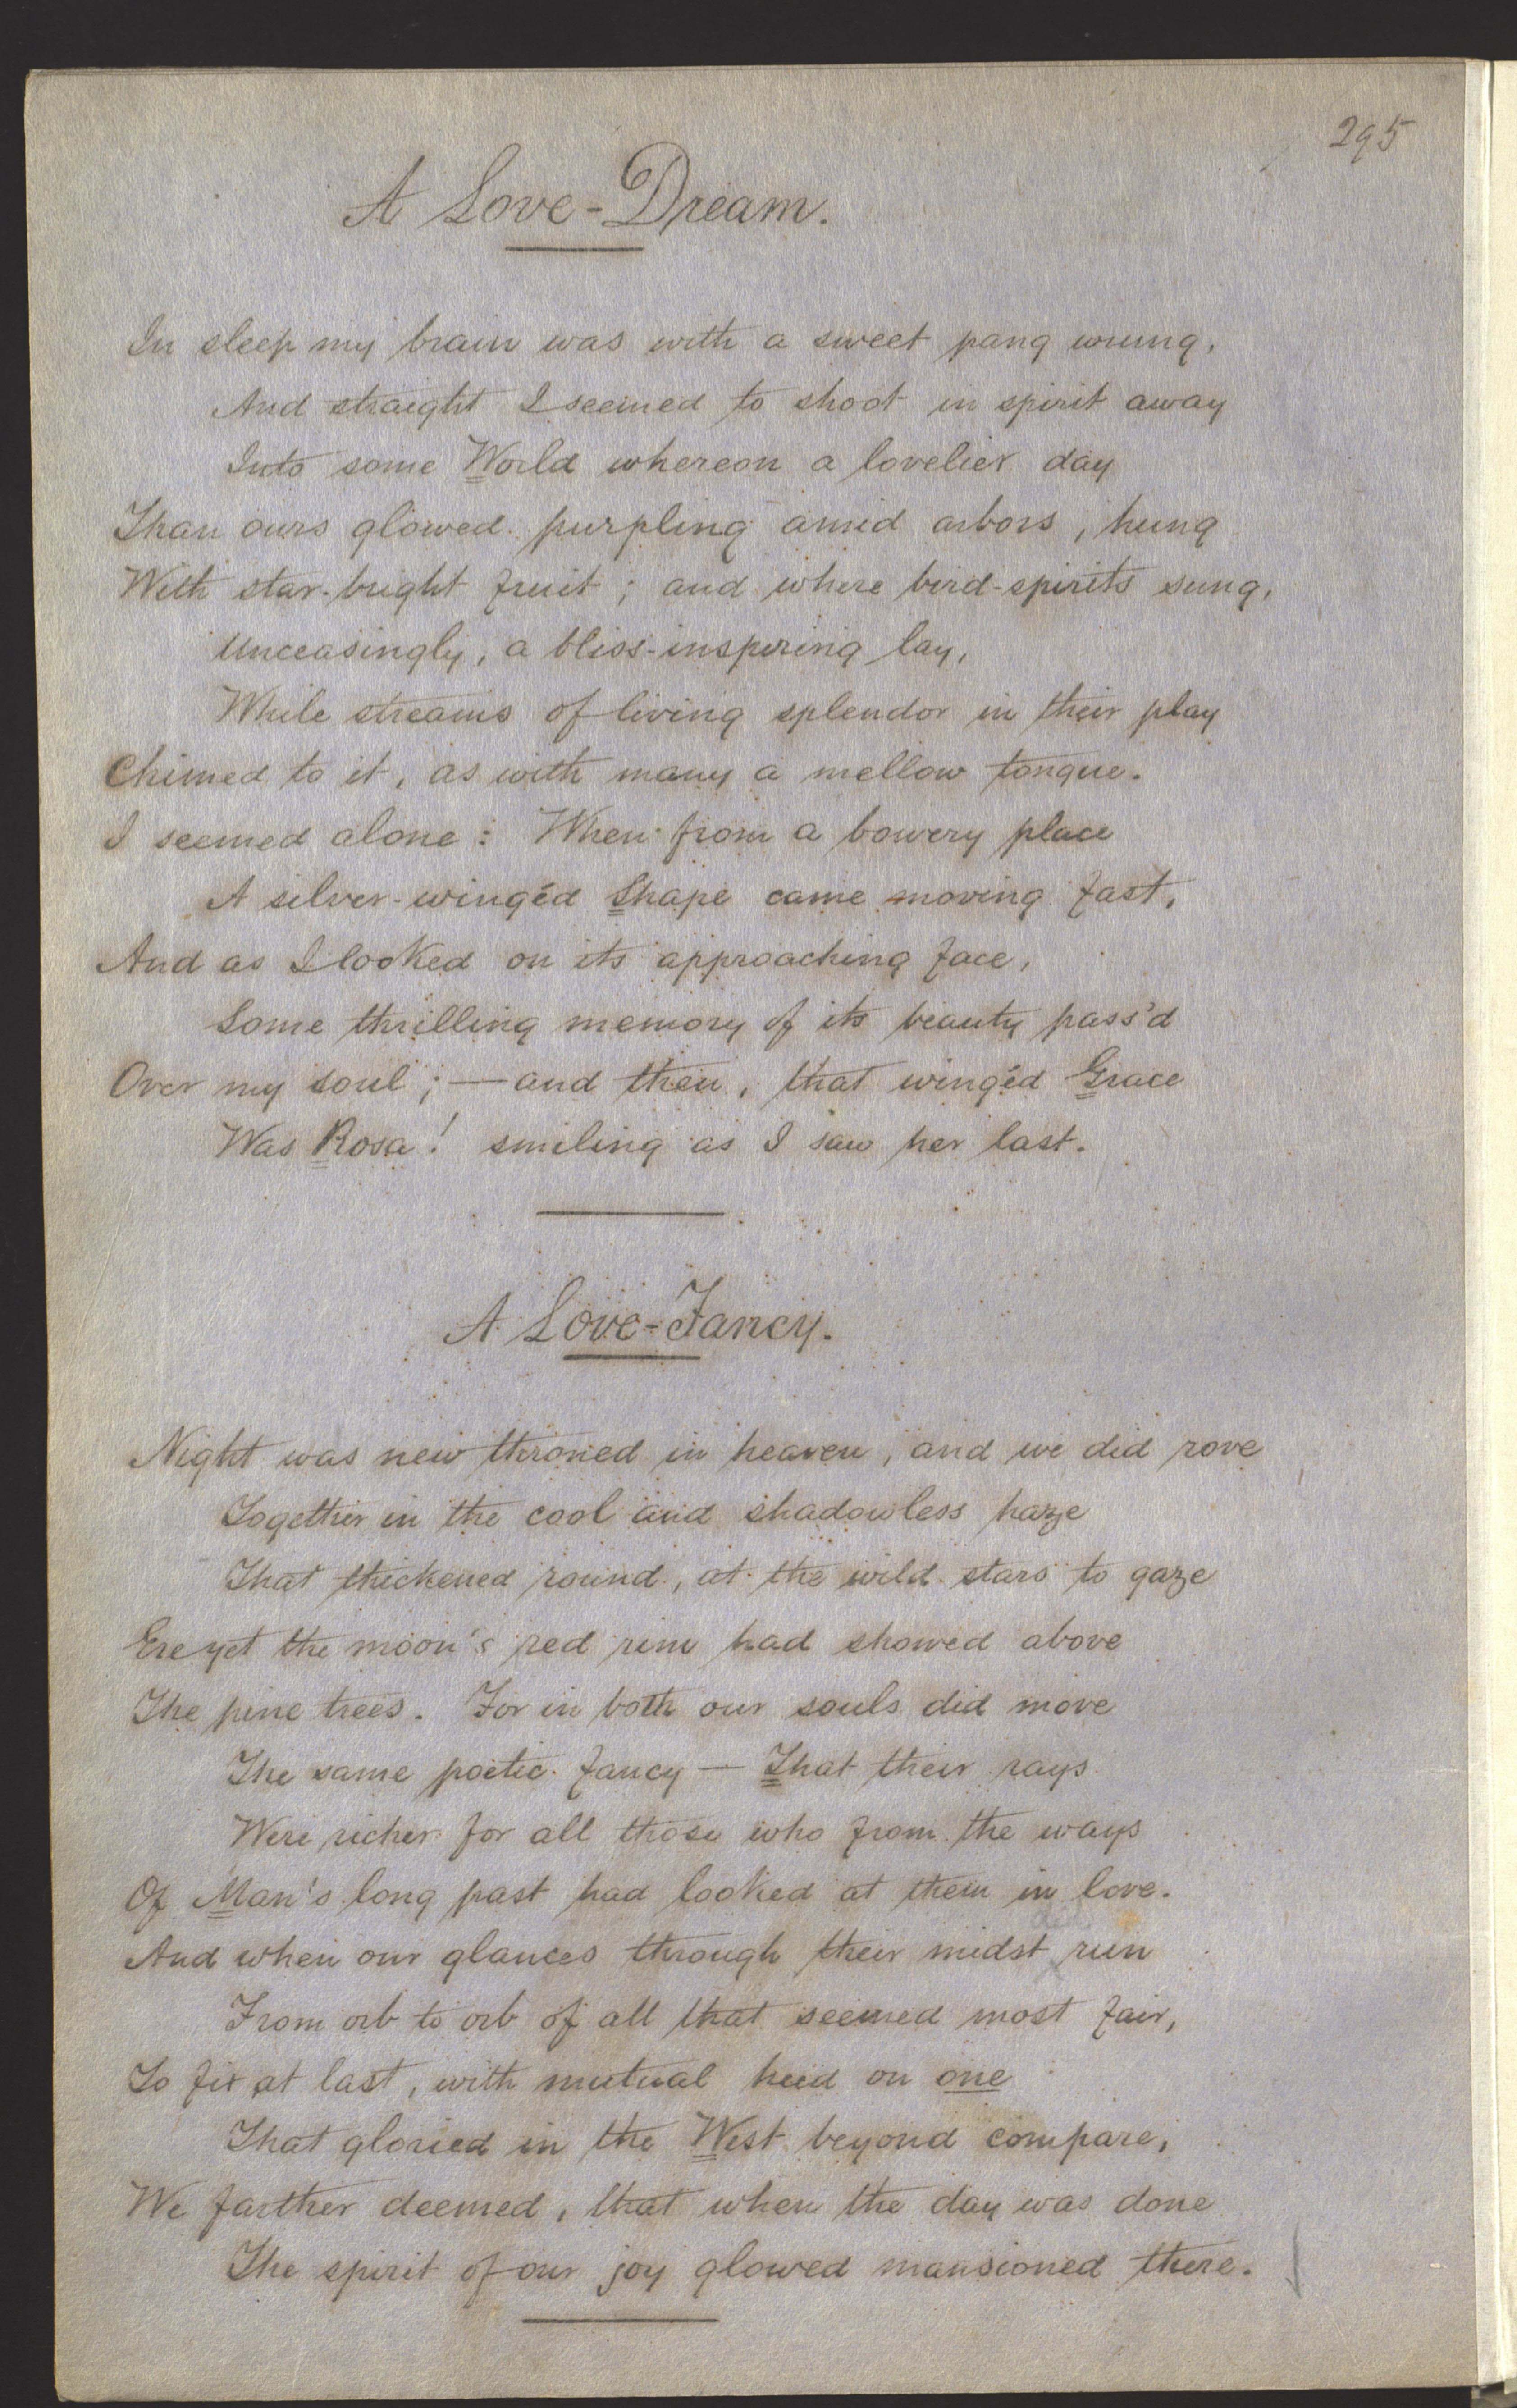 295
A Love-Dream.
In sleep my brain was with a sweet pang wrung,
And straight I seemed to shoot in spirit away
Into some World whereon a lovelier day
Than ours glowed purpling amid arbors, hung
With star-bright fruit; and where bird-spirits sung,
Unceasingly, a bliss-inspiring lay,
While streams of living splendor in their play
Chimed to it, as with many a mellow tongue.
I seemed alone: When from a bowery place
A silver-wingéd Shape came moving fast,
And as I looked on its approaching face,
Some thrilling memory of its beauty pass'd
Over my soul;—and then, that wingéd Grace
Was Rosa! smiling as I saw her last.
A Love-Fancy.
Night was new throned in heaven, and we did rove
Together in the cool and shadowless haze
That thickened round, at the wild stars to gaze
Ere yet the moon's red rim had showed above
The pine trees. For in both our souls did move
The same poetic fancy — That their rays
Were richer for all those who from the ways
Of Man's long past had looked at them in love.
And when our glances through their midst run
From orb to orb of all that seemed most fair,
To fix at last, with mutual heed on one
That gloried in the West beyond compare,
We farther deemed, that when the day was done
The spirit of our joy glowed mansioned there.